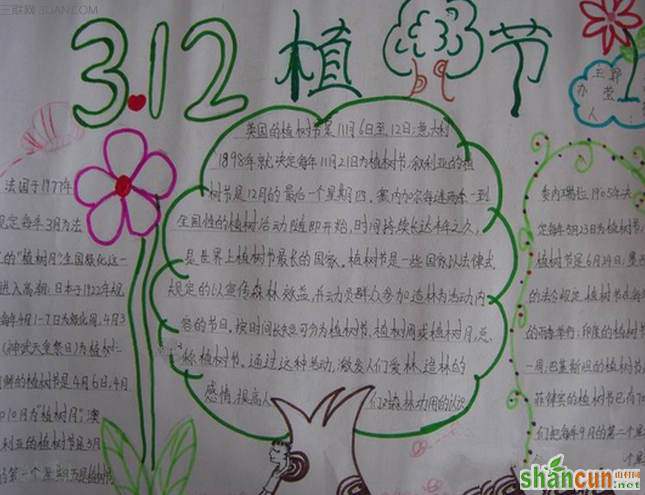 三联网 3LIAN.COM
3.12植树节
王郭
办莹
人:
法国于1977年
规定每年3月为法
的"植树月"全国绿化这一
进入高潮;日本于1922年规
每年4月1-7日为绿化周,4月3
(神武天皇祭日)为植树
鲜的植树节是4月6日,4月
10月为"植树月";澳
利亚的植树节是5月
第一个星期五是植树节
英国的植树节是11月6日至12日;意大利
1898年就决定每年11月21日为植树节;叙利亚的植
树节是12月的最后一个星期四。塞内加尔每逢雨季一到
全国性的植树活动随即开始,时间持续长达半年之久,
是世界上植树节最长的国家。植树节是一些国家以法律去
规定的以宣传森林效益,并动员群众参加造林为活动内
容的节日。按时间长短可分为植树节、植树周或植树月,总
称植树节。通过这种活动,激发人们爱林、造林的
感情,提高人们对森林功用的认识
委内瑞拉1905年决
定每年5月23日为植树节;
植树节是6月24日;墨西
的法令规定,植树节在每年
的雨季举行;印度的植树节
一周;巴基斯坦的植树节
菲律宾的植树节已有70
们把每年9月的第二个星
个星
shancun 山村网
.net